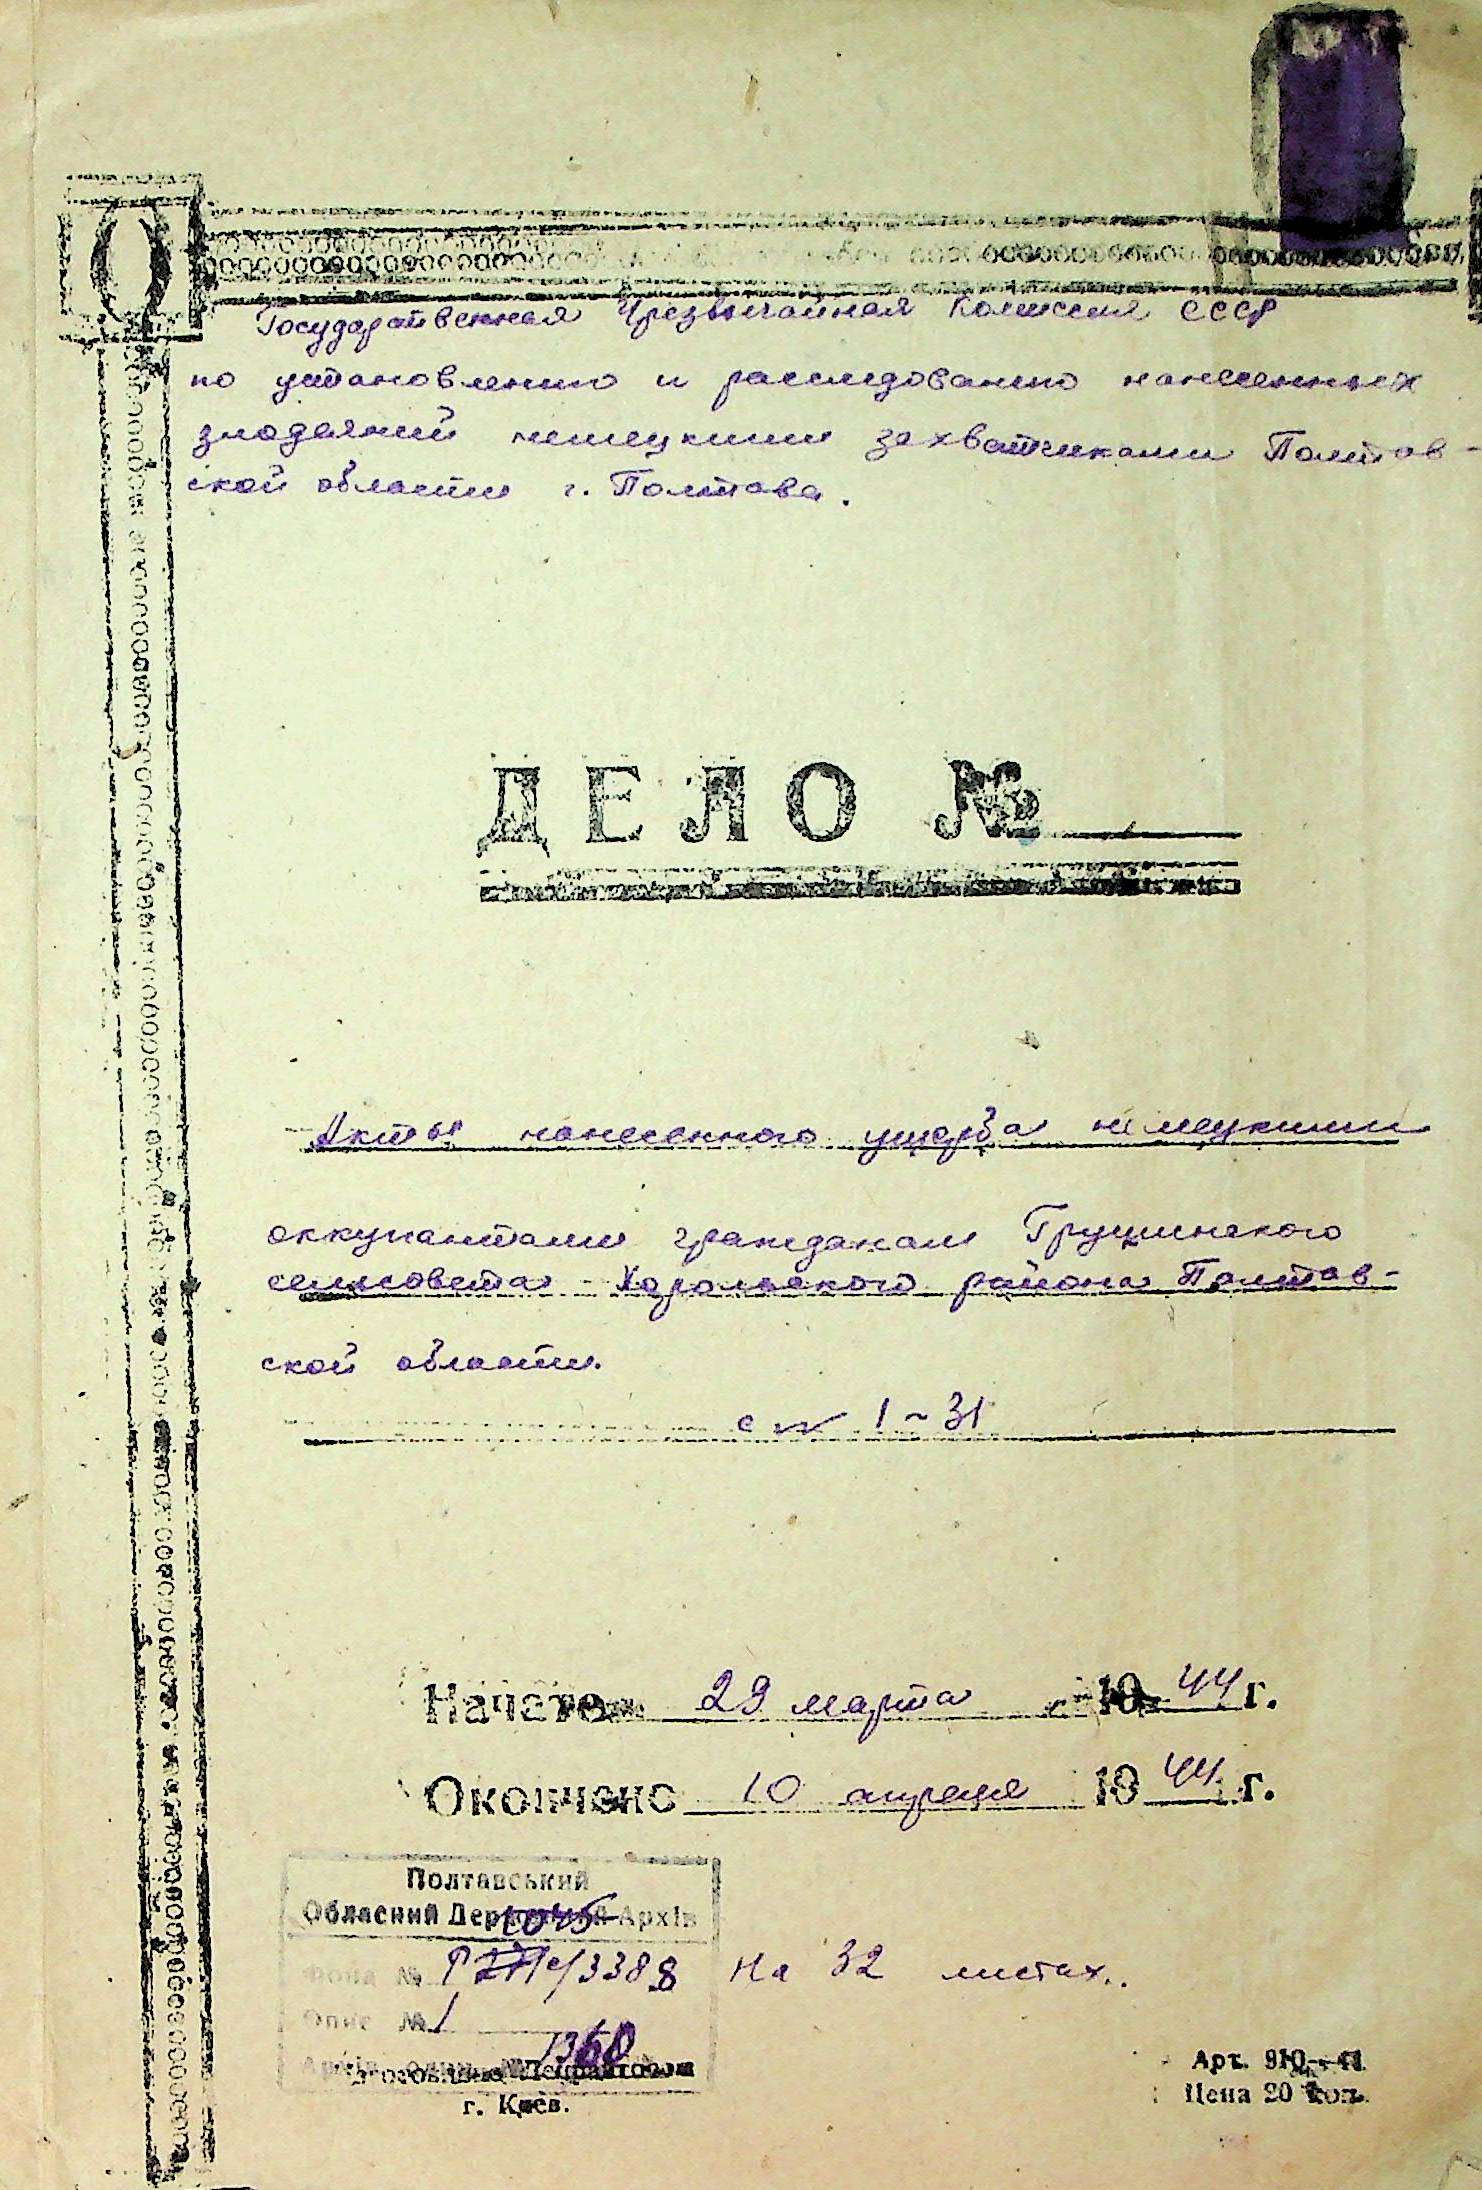 Государственная Чрезвычайная Комиссия СССР
по установлению и расследованию нанесенных
злодеяний немецкими захватчиками Полтав-
ской области г. Полтава.
ДЕЛО №
Акты нанесенного ущерба немецкими
оккупантами гражданам Грушинского
сельсовета Хорольского района Полтав-
ской области.
с № 1-31
Начато 29 марта 1944 г.
Окончено 10 апреля 1944 г.
Полтавський
Обласний Державний Архів
1045
Фонд № Р 3388
На 32 листах.
Опис № 1
1360
г. Киев.
Арт. 910-
Цена 20 коп.